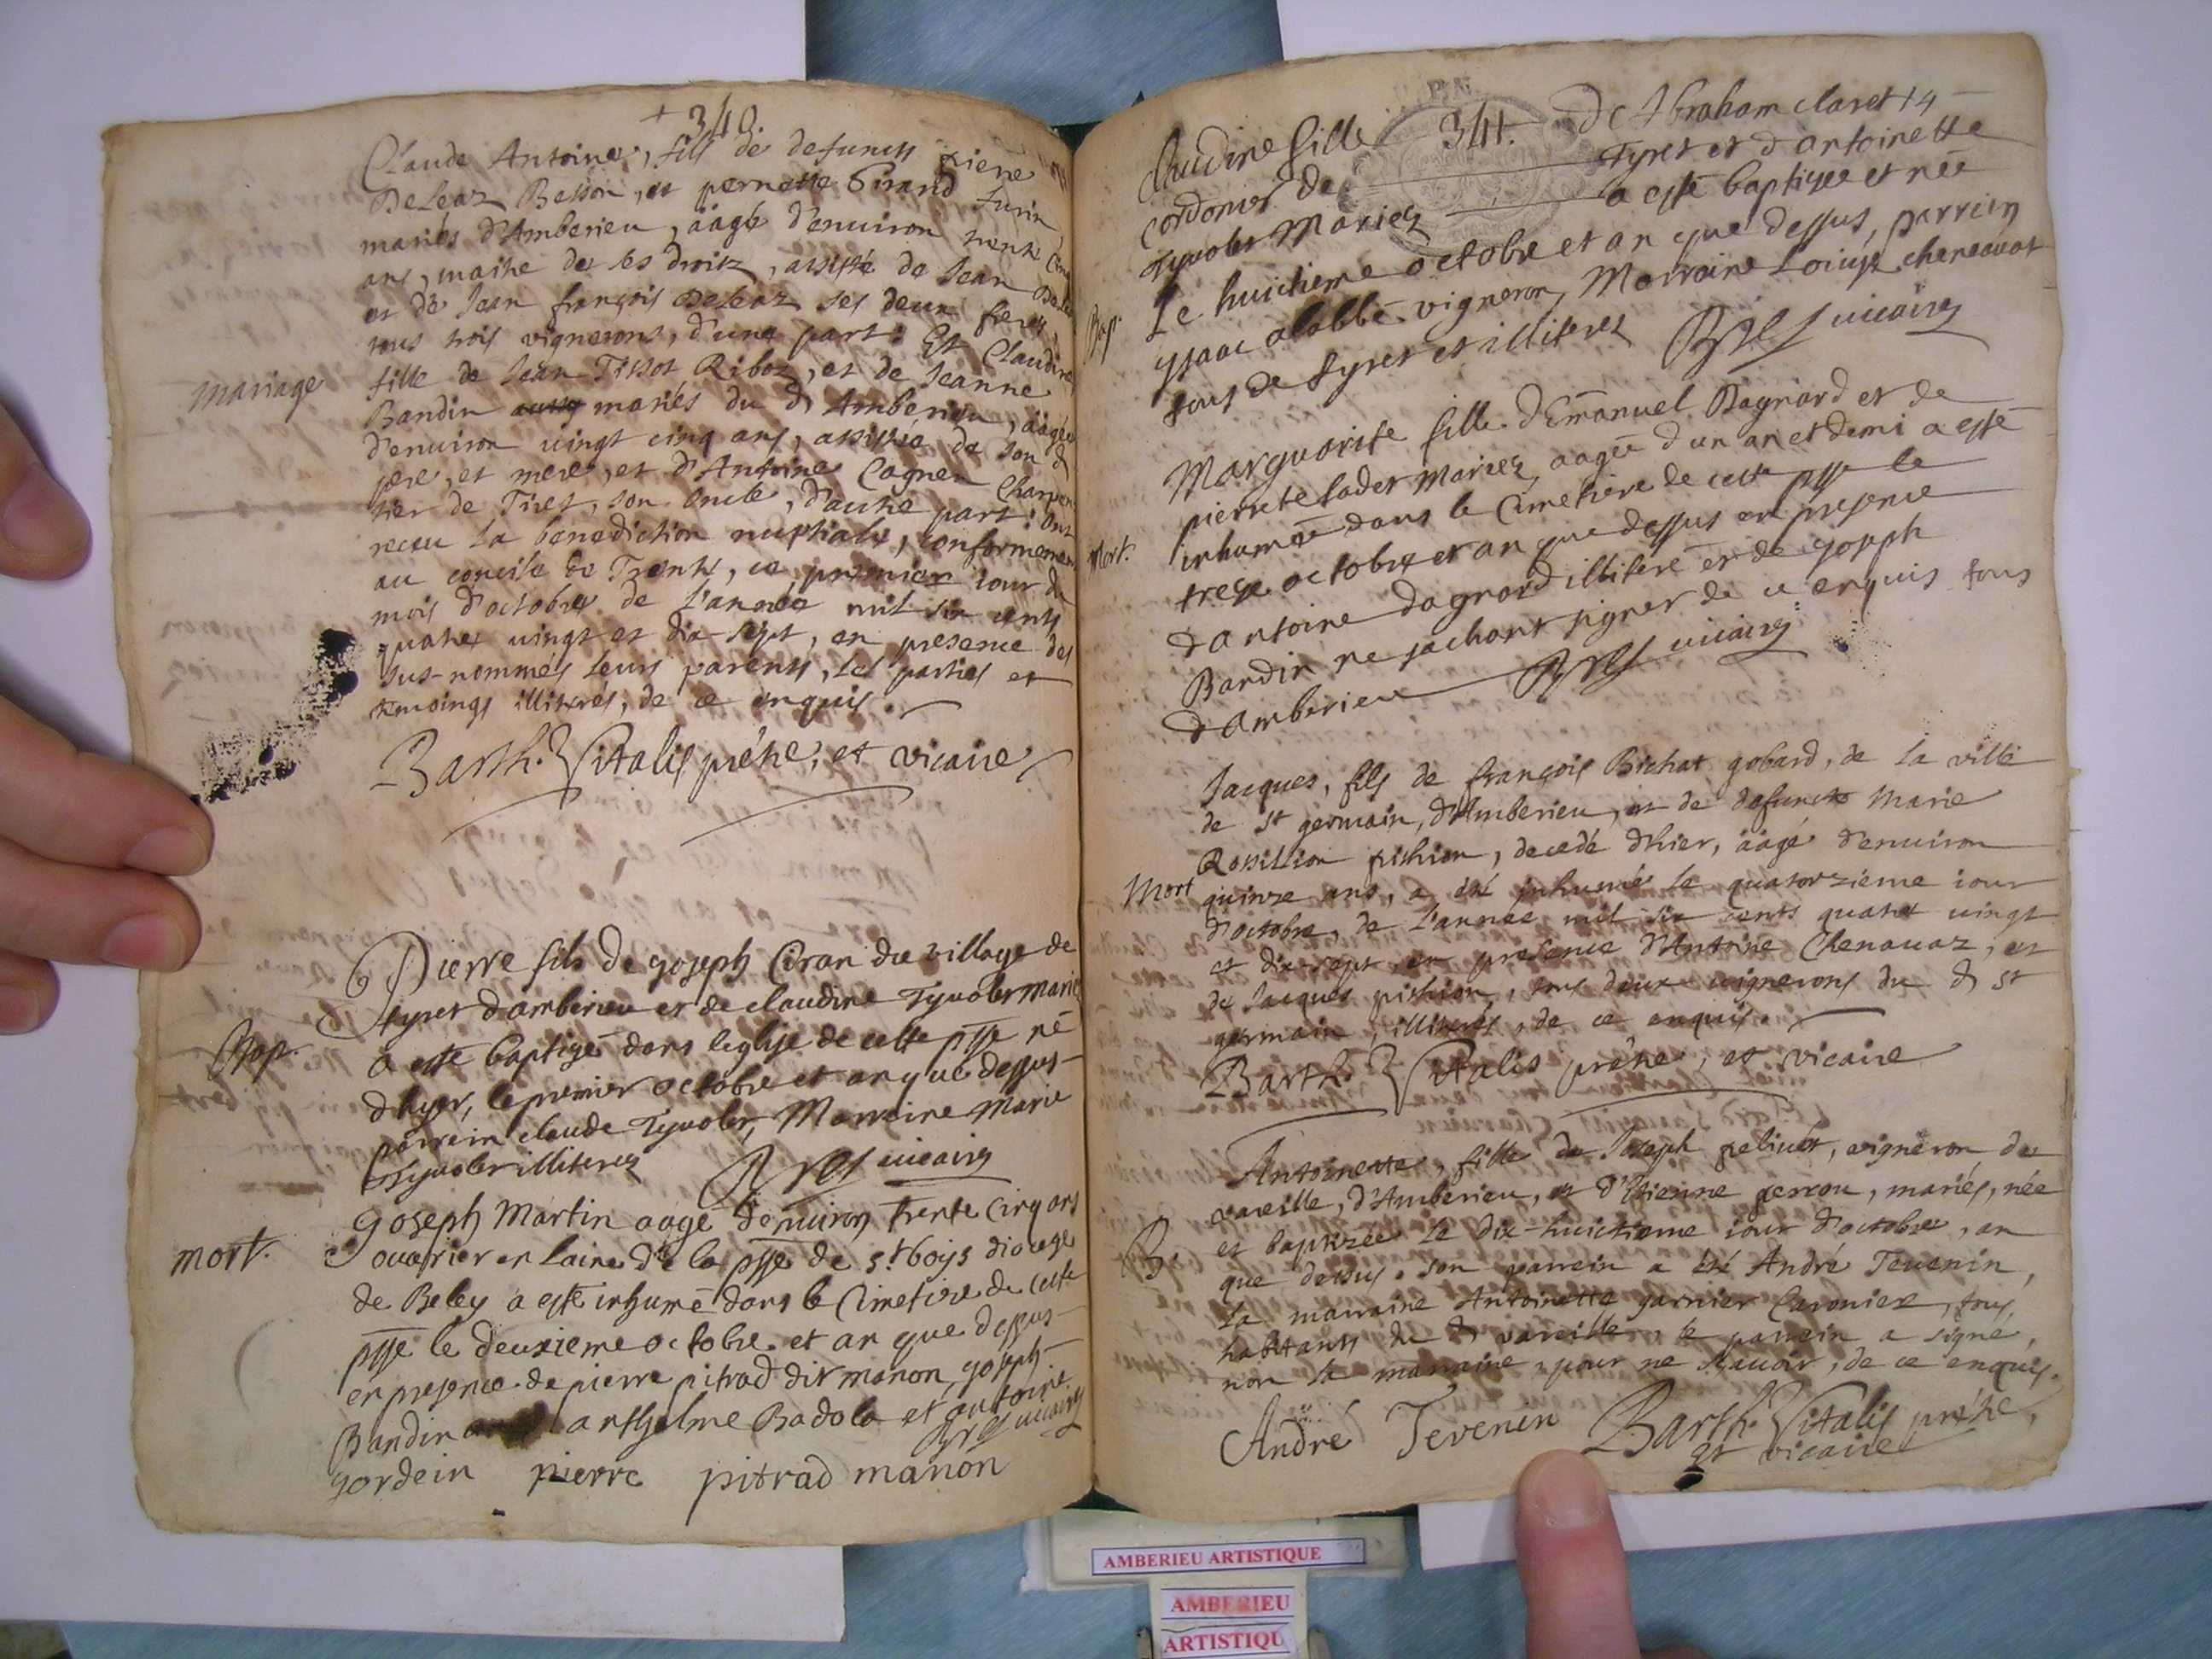 + 340.
Claude Antoine, fils de defuncts Pierre
DeLeaz Besson, et pernette Girand Turin
mariés d'Amberieu, aâgé d'enuiron trente cinq
ans, maitre de ses droits, assisté de Jean DeLea
et de Jean françois DeLeaz ses deux freres,
tous trois vignerons, d'une part: Et Claudine
fille de Jean Tissot Riboz, et de Jeanne
Bandin mariés du d Amberieu, aâgée
d'enuiron uingt cinq ans, assistée de son d
pere, et mere, et d'Antoine Cagnen Charpen
tier de Tiret, son oncle, d'autre part: Ont
receu La benediction nuptiale, conformemen
au concile de Trente, ce premier iour du
mois d'octobre de L'année mil six cents
quatre uingt et dix-sept, en presence des
sus-nommés leurs parents, les parties et
temoings illiterés, de ce enquis.
mariage
Barth. Vitalis prêtre, et vicaire
Pierre fils de joseph Ciran du village de
tyret d'amberieu et de claudine Tyuolet mariez
a esté baptizé dans leglise de cette psse né
dhyer, le premier octobre et an que dessus
parrein claude Tyuolet, Marreine Marie
Tyuolet illiterez vicaire
Bap.
joseph Martin aagé denuiron trente cinq ans
ouurier en laine de la psse de st boys diocege
de Beley a esté inhumé dans le Cimetiere de cette
psse le deuxieme octobre et an que dessus
en presence de pierre pitrad dit manon, joseph
Bandin anthelme Badola et antoine
mort.
vicaire
gordein pierre pitrad manon
341.
Claudine fille de Abraham claret 14
cordonier de tyret et d'antoinette
Tyuolet Mariez a esté baptisee et née
Le huictieme octobre et an que dessus, parrein
ysaac alabbe vigneron, Marraine Louise cheneavat
tous de tyret et illiterez vicaire
Bap.
Marguerite fille d'Emanuel Dagnard et de
pierrete fadet Mariez, aagée d'un an et demi a esté
inhumée dans le Cimetiere de cette psse le
treze octobre et an que dessus en presence
d'antoine dagnard illiteré et de joseph
Bandin ne sachant signer de ce enquis tous
d'amberieu vicaire
Mort.
Jacques, fils de françois Bichat gobard, de la ville
de st germain, d'Amberieu, et de defuncte Marie
Rossillion pichion, decedé d'hier, aâgé d'enuiron
quinze ans, a été inhumé le quatorzieme iour
d'octobre, de L'année mil six cents quatre uingt
et dix-sept, en presence d'Antoine Chenauaz, et
de Jacques pichion, tous deux uignerons du d st
germain, illiterés, de ce enquis.
Mort
Barth. Vitalis prêtre, et vicaire
Antoinette, fille de Joseph peliuet, vigneron de
vareille, d'Amberieu, et d'Etienne perrou, mariés, née
et baptizée Le dix-huictieme iour d'octobre, an
que dessus. son parrein a été André Teuenin,
La marraine Antoinette garnier Caroniere, tous
habitants du d vareille, le parrein a signé,
non La marraine, pour ne sçauoir, de ce enquis.
B.
André Tevenen Barth. Vitalis prêtre,
et vicaire
AMBERIEU ARTISTIQUE
AMBERIEU
ARTISTIQU